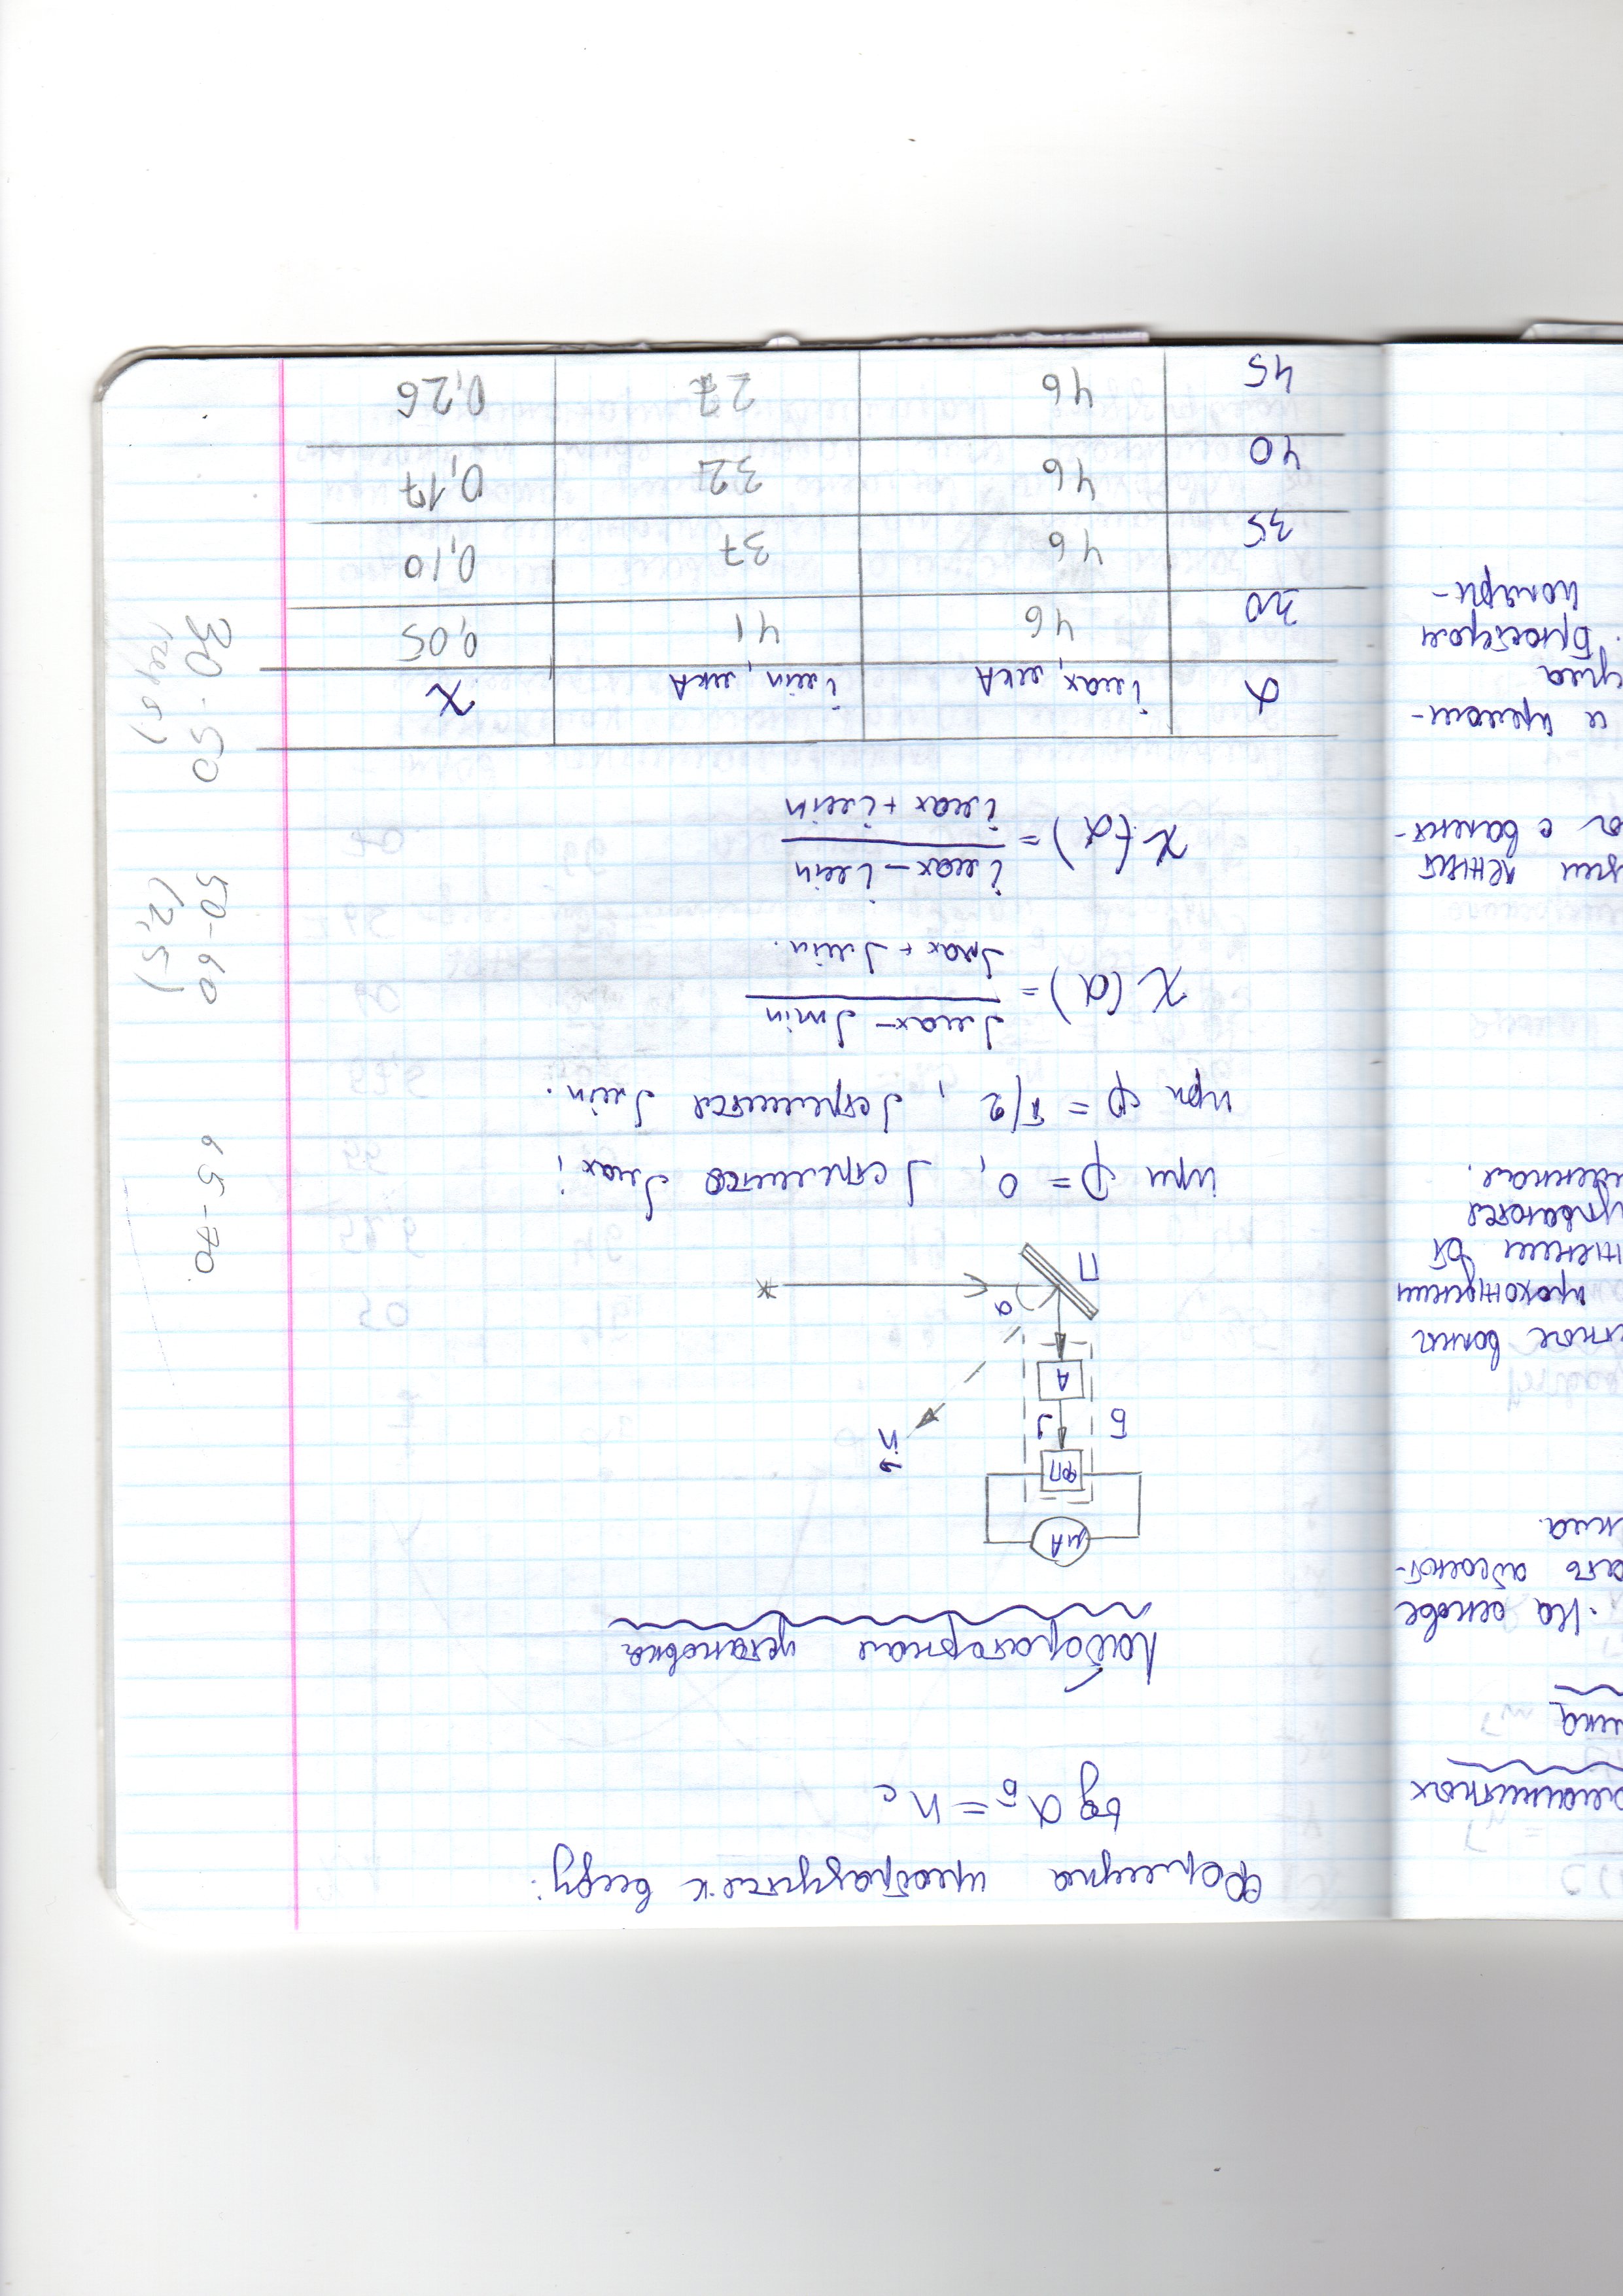 омагнитных
ика
. На основе
ать абсолют-
кла.
тные волны
прохождении
жении от
зываются
ленная.
ции лежит
ог с валент-
и прелом-
угла
. Брюстером
поляри-
Формула преобразуется к виду:
tg α Б = n с
Лабораторная установка
μA
ФП
Б J
n
А
α
П
при φ = 0, J стремится Jмах;
при φ = π/2, J стремится Jmin.
χ(α) = Jмах - Jmin / Jмах + Jmin.
χ(α) = iмах - imin / iмах + imin
α iмах, мкА imin, мкА χ
30 46 41 0,05
35 46 37 0,10
40 46 32 0,17
45 46 27 0,26
65-70.
50-60
(2,5)
30-50